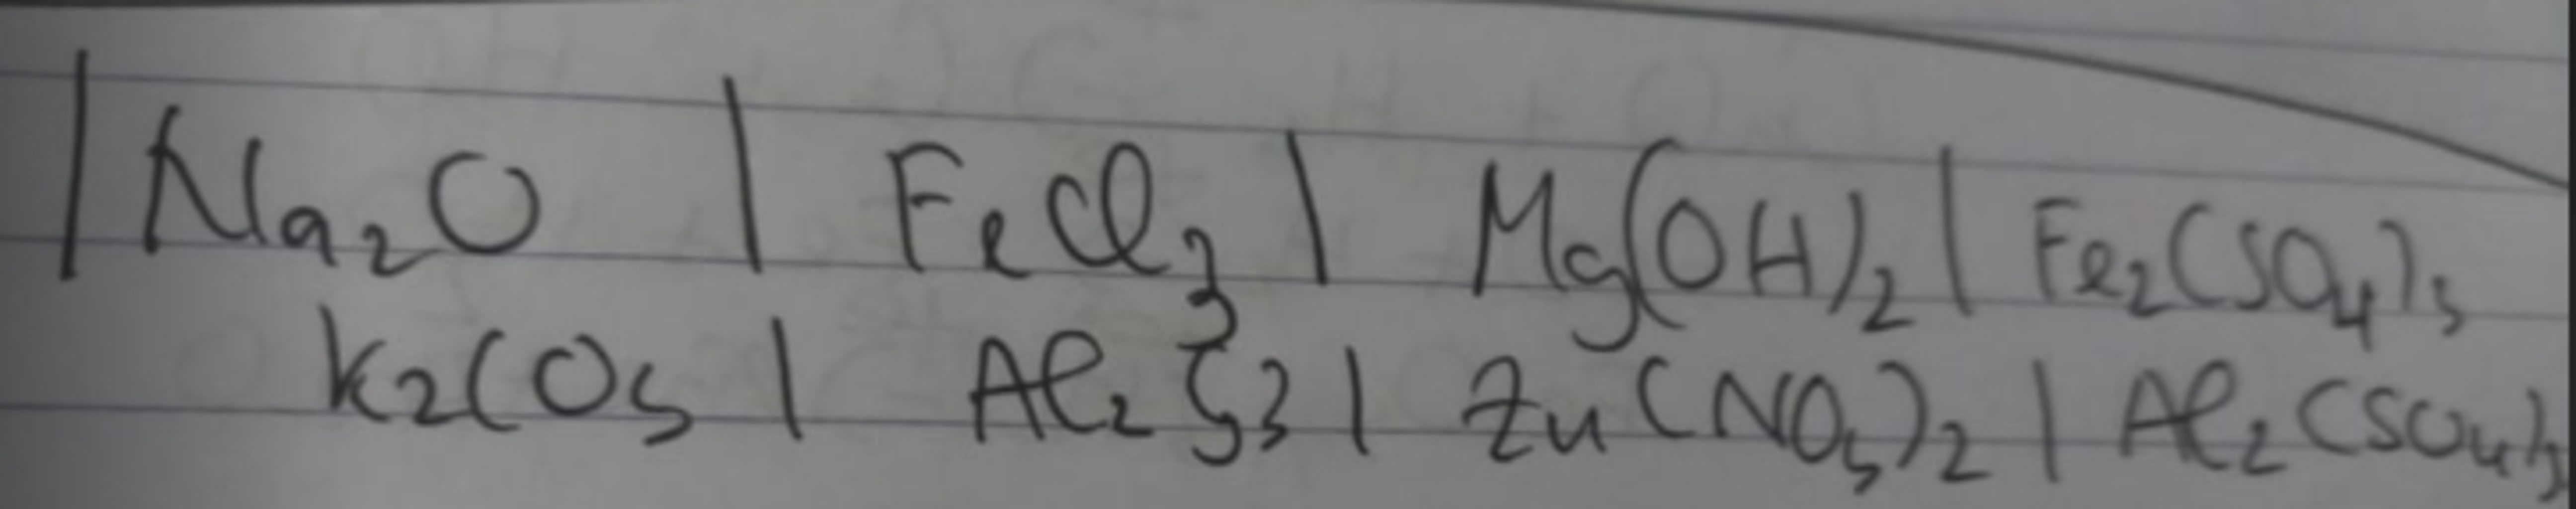 | Na₂O | FeCl₃ | Mg(OH)₂ | Fe₂(SO₄)₃
K₂CO₃ | Al₂S₃ | Zn(NO₃)₂ | Al₂(SO₄)₃